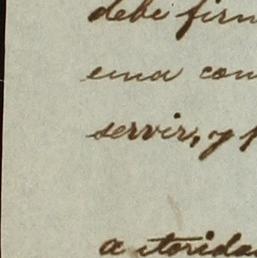 debe firm
una com
servir, y p
a utorida